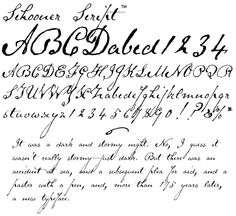 Schooner Script™
ABCDabcd1234
ABCDEFGHIJKLMNOPQR
STUVWXYZabcdefghijklmnopqr
stuvwxyz1234567890!?
It was a dark and stormy night. No, I guess it
wasn't really stormy—just dark. But there was an
accident at sea, and a subsequent plea for aid, and a
pastor with a pen, and, more than 175 years later,
a new typeface.